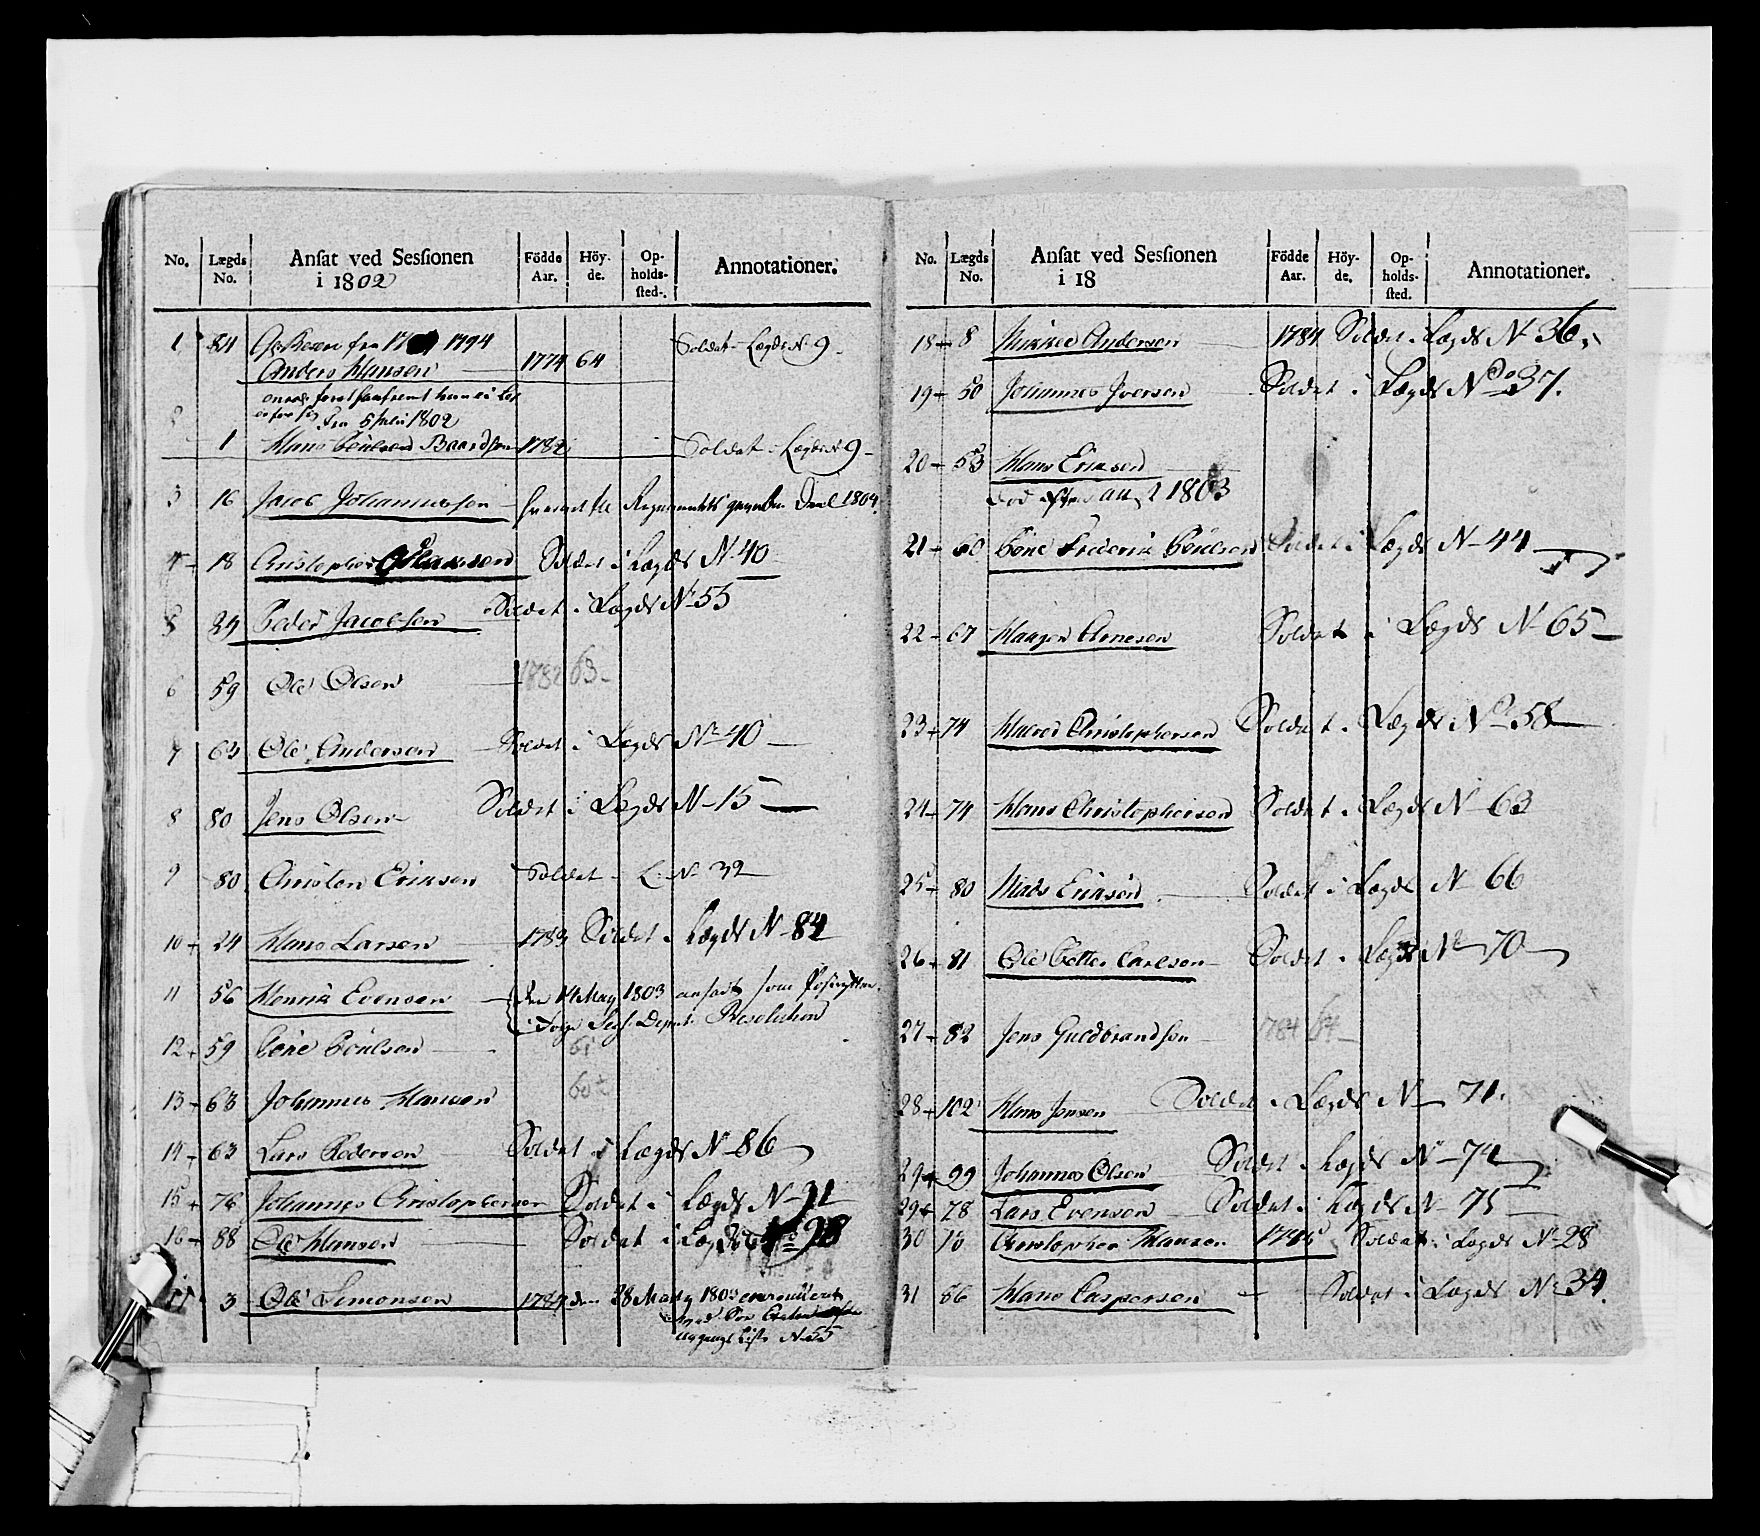 No. Lægds No. Ansat ved Sessionen i 1802 Födde Aar. Höyde. Opholdssted. Annotationer.
1 84 fra 1794
Anders Hansen 1774 64 Soldat Lægds N 9
1802
2 1 Hans Poulsen Baardsen 1782 Soldat i Lægds N 9
3 16 Jacob Johannessen Regiments 1804
4 18 Christopher Hansen Soldat i Lægds N 40
5 24 Peder Jacobsen Soldat i Lægds N 55
6 59 Ole Olsen 1782 63
7 63 Ole Andersen Soldat i Lægds N 40
8 80 Jens Olsen Soldat i Lægds N 15
9 80 Christen Eriksen Soldat L: N 32
10 + 24 Hans Larsen 1783 Soldat i Lægds N 84
11 56 Henrik Evensen den 14 May 1803 ansadt som
Resolution
12 + 59 Poul Poulsen 61
13 + 63 Johannes Hansen 60
14 + 63 Lars Pedersen Soldat i Lægds N 86
15 + 76 Johannes Christophersen Soldat i Lægds N 91
16 + 88 Ole Hansen Soldat i Lægds 98
17 3 Ole Simonsen 1784 den 28 Marty 1803
Afgangs Liste N 55
No. Lægds No. Ansat ved Sessionen i 18 Födde Aar. Höyde. Opholdssted. Annotationer.
18 + 8 Mikkel Andersen 1784 Soldat i Lægds N 36
19 + 50 Johannes Iversen Soldat i Lægds No 37.
20 + 53 Hans Eriksen
död 1803
21 + 60 Frederik Poulsen Soldat i Lægds N 44
22 - 67 Haagen Arnesen Soldat i Lægds N 65
23 + 74 Halvor Christophersen Soldat i Lægds No 58
24 + 74 Hans Christophersen Soldat i Lægds N 63
25 + 80 Mads Eriksen Soldat i Lægds N 66
26 + 81 Ole Petter Carlsen Soldat i Lægds N 70
27 + 82 Jens Guldbrandsen 1784 64
28 + 102 Hans Jensen Soldat i Lægds N 71.
29 + 99 Johannes Olsen Soldat i Lægds N 74
29 + 78 Lars Evensen Soldat i Lægds N 75
30 78 Christopher Hansen 1785 Soldat i Lægds N 28
31 56 Hans Caspersen Soldat i Lægds N 34.